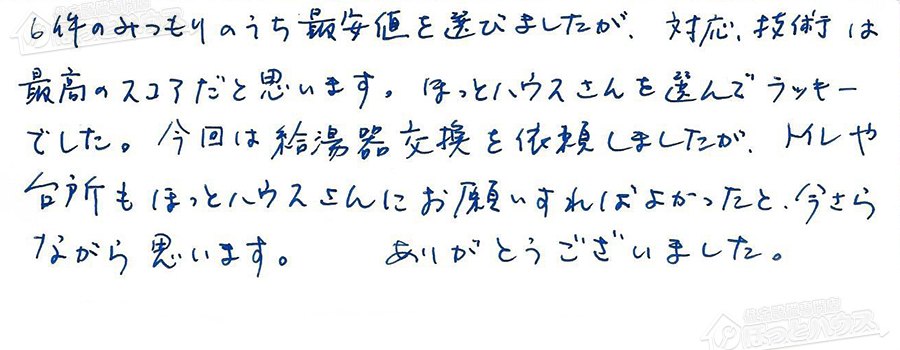 6件のみつもりのうち最安値を選びましたが、対応、技術は
最高のスコアだと思います。ほっとハウスさんを選んでラッキー
でした。今回は給湯器交換を依頼しましたが、トイレや
台所もほっとハウスさんにお願いすればよかったと、今さら
ながら思います。 ありがとうございました。
ほっとハウス